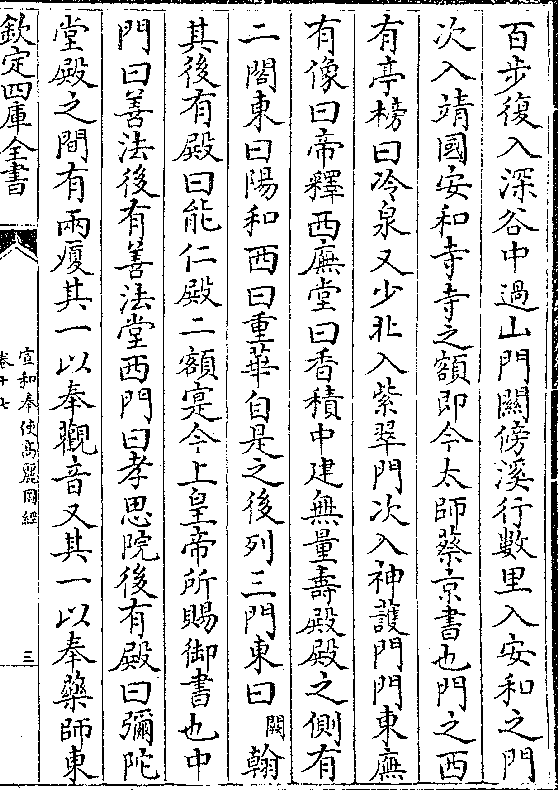 百步復入深谷中過山門闗傍溪行數里入安和之門
次入靖國安和寺寺之額即今太師蔡京書也門之西
有亭榜曰冷泉又少北入紫翠門次入神䕶門門東廡
有像曰帝釋西廡堂曰香積中建無量壽殿殿之側有
二閣東曰陽和西曰重華自是之後列三門東曰闕翰
其後有殿曰能仁殿二額寔今上皇帝所賜御書也中
門曰善法後有善法堂西門曰孝思院後有殿曰彌陀
堂殿之間有兩廈其一以奉觀音又其一以奉藥師東
欽定四庫全書
宣和奉使高麗圖經
卷十七
三